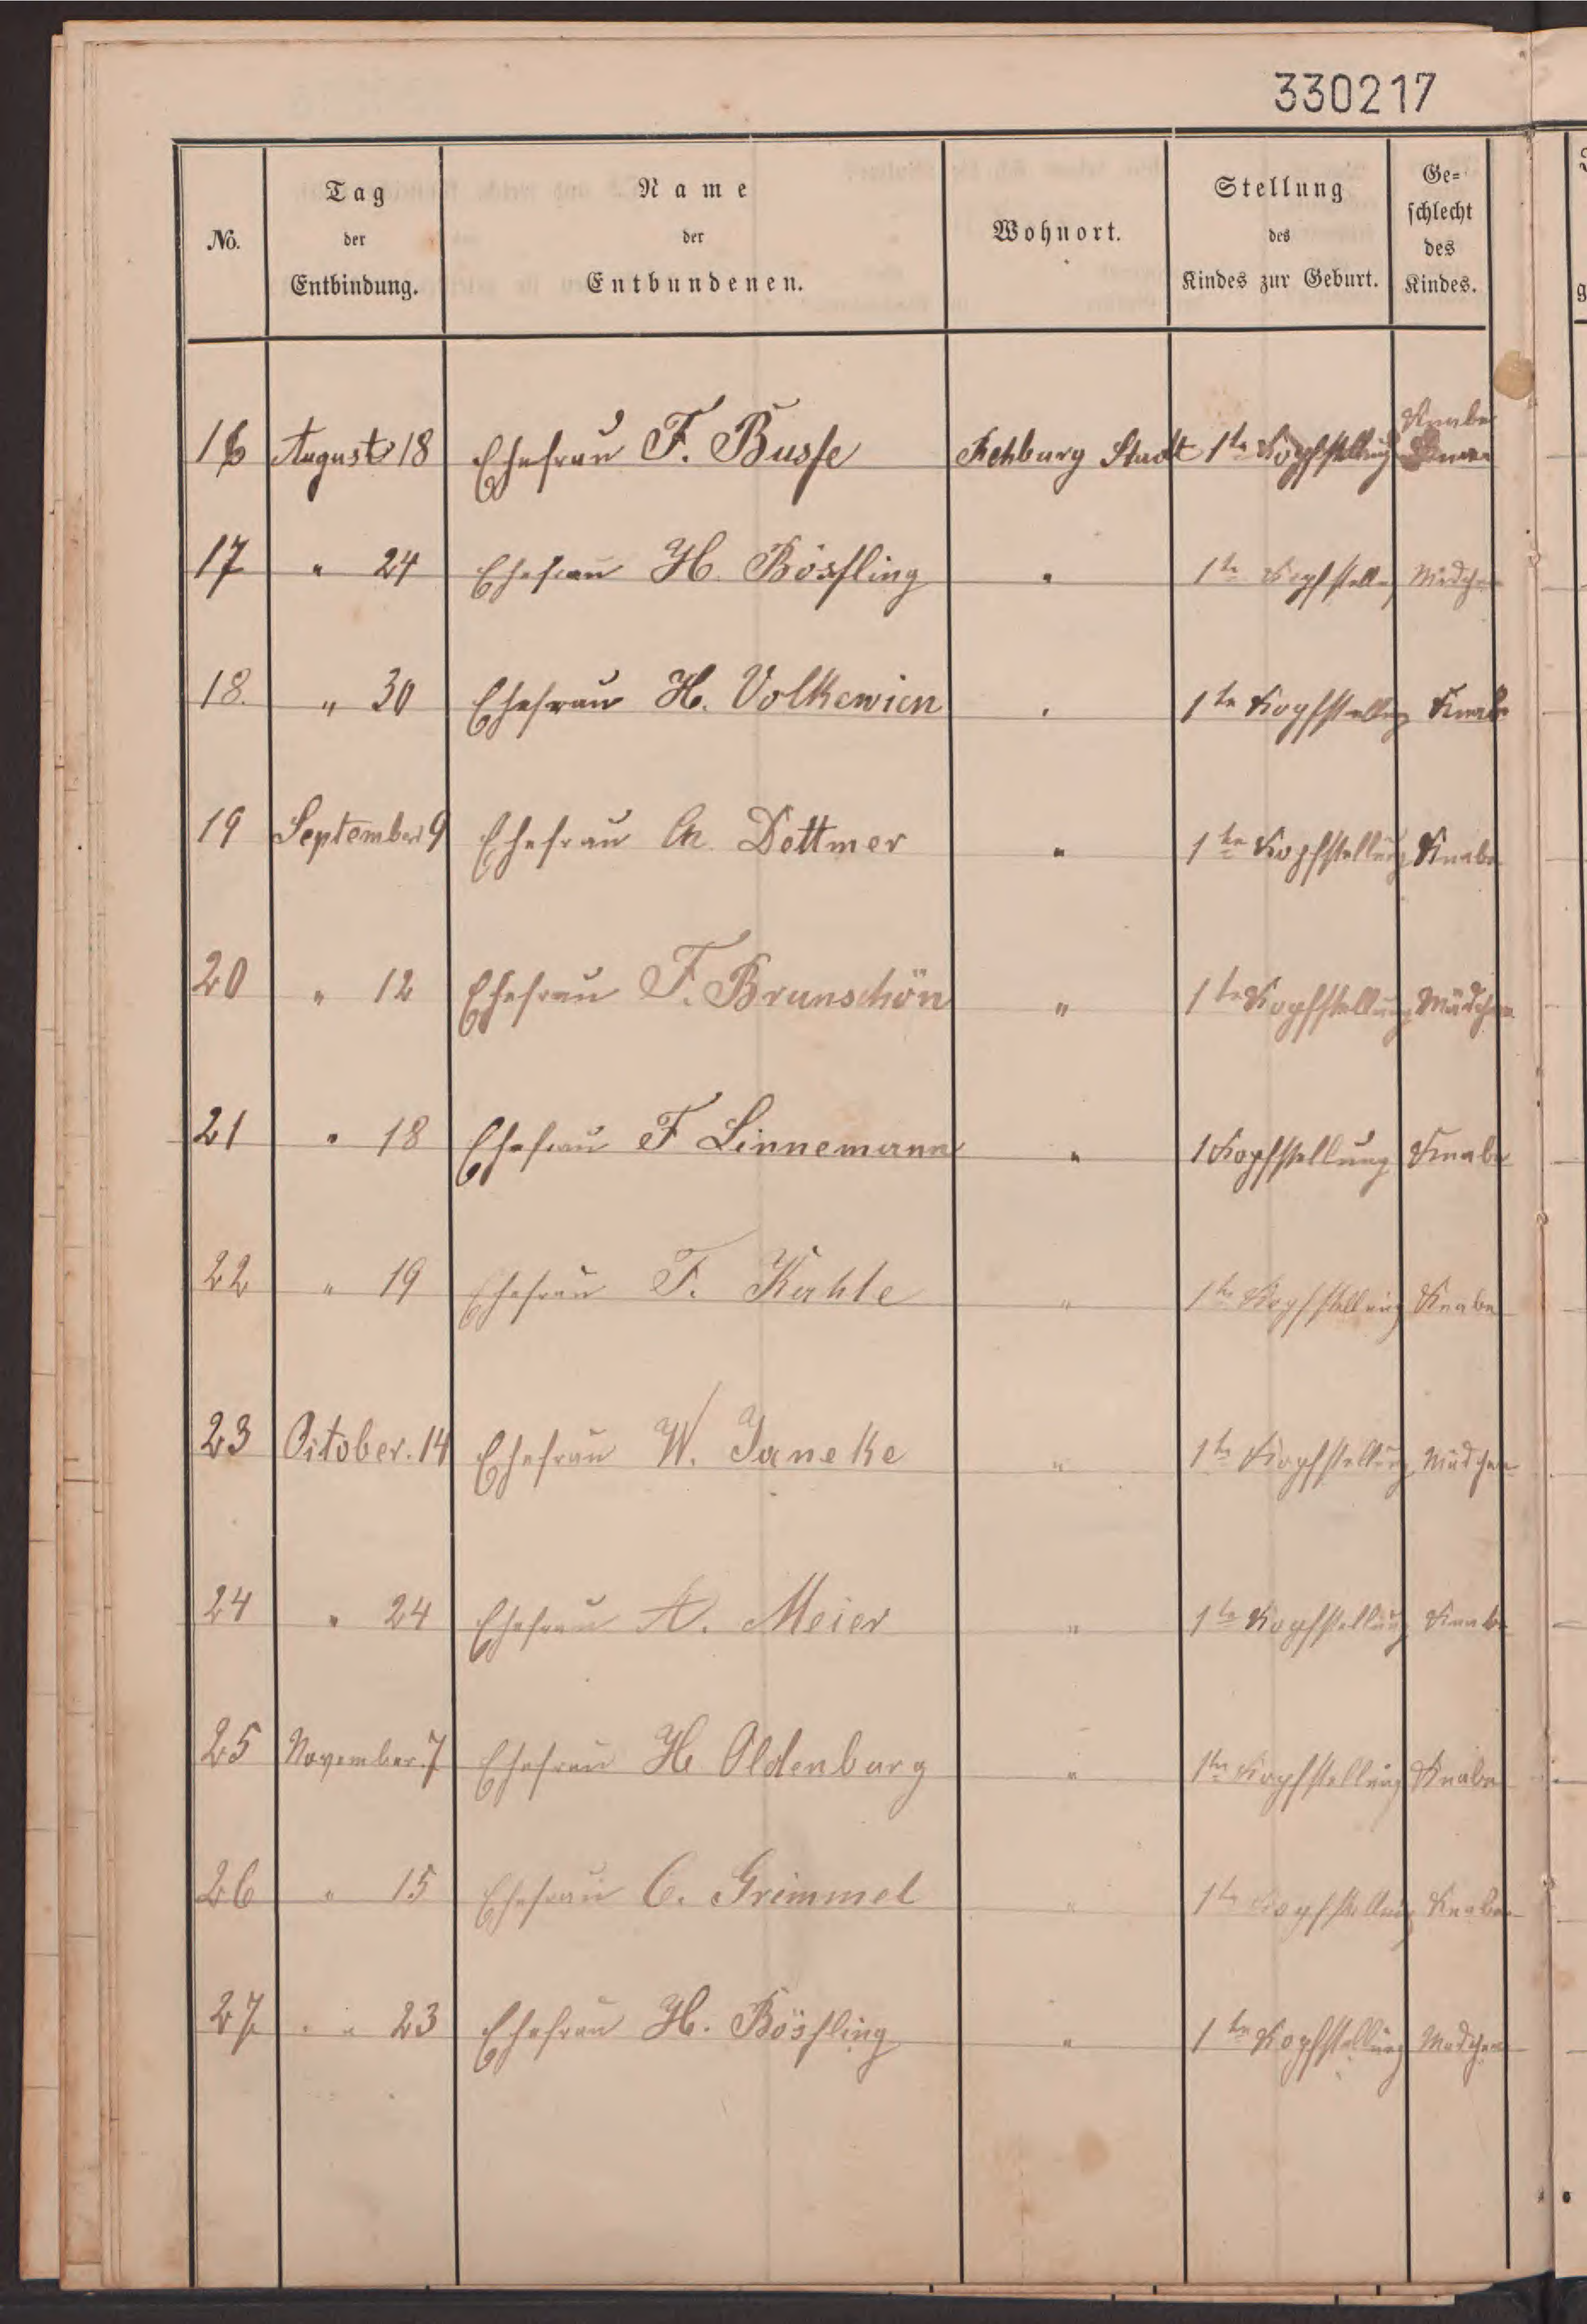 330217
No. Tag der Entbindung. Name der Entbundenen. Wohnort. Stellung des Kindes zur Geburt. Ge= schlecht des Kindes.
Knabe
16 August 18 Ehefrau F. Busse Rehburg Stadt 1te Kopfstellung
17 " 24 Ehefrau H. Bösfling " 1te Kopfstellg Mädchen
18. " 30 Ehefrau H. Volkewien " 1te Kopfstellung Knabe
19 September 9 Ehefrau Dettmer " 1te Kopfstellung Knabe
20 " 12 Ehefrau F. Brunschön " 1te Kopfstellung Mädchen
21 " 18 Ehefrau F Linnemann " 1 Kopfstellung Knabe
22 " 19 Ehefrau F. Kahle " 1te Kopfstellung Knabe
23 October. 14 Ehefrau W. Janeke " 1te Kopfstellung Mädchen
24 " 24 Ehefrau A. Meier " 1te Kopfstellung Knabe
25 November. 7 Ehefrau H Oldenburg " 1te Kopfstellung Knabe
26 " 15 Ehefrau C. Grimmel " 1te Kopfstellung Knabe
27 " " 23 Ehefrau H. Bösfling " 1te Kopfstellung Madchen